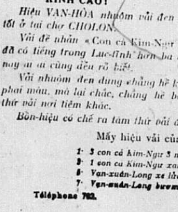 KÍNH CÁO!
Hiệu VẠN-HÒA nhuộm vải đen
tốt ở tại chợ CHOLON.
Vải đề nhãn «Con cá Kim-Ngư
đã có tiếng trong Lục-tỉnh hơn ba
nay ai ai cũng đều rõ biết.
Vải nhuộm đen dùng chẳng hề
phai màu, mà lại chắc, chẳng hề
thứ vải nơi tiệm khác.
Bổn-hiệu có chế ra tám thứ vải
Mấy hiệu vải của
1· 3 con cá Kim-Ngư 3
3· 1 con cá Kim-Ngư
6· Vạn-xuân-Long xe
7· Vạn-xuân-Long
Téléphone 762.